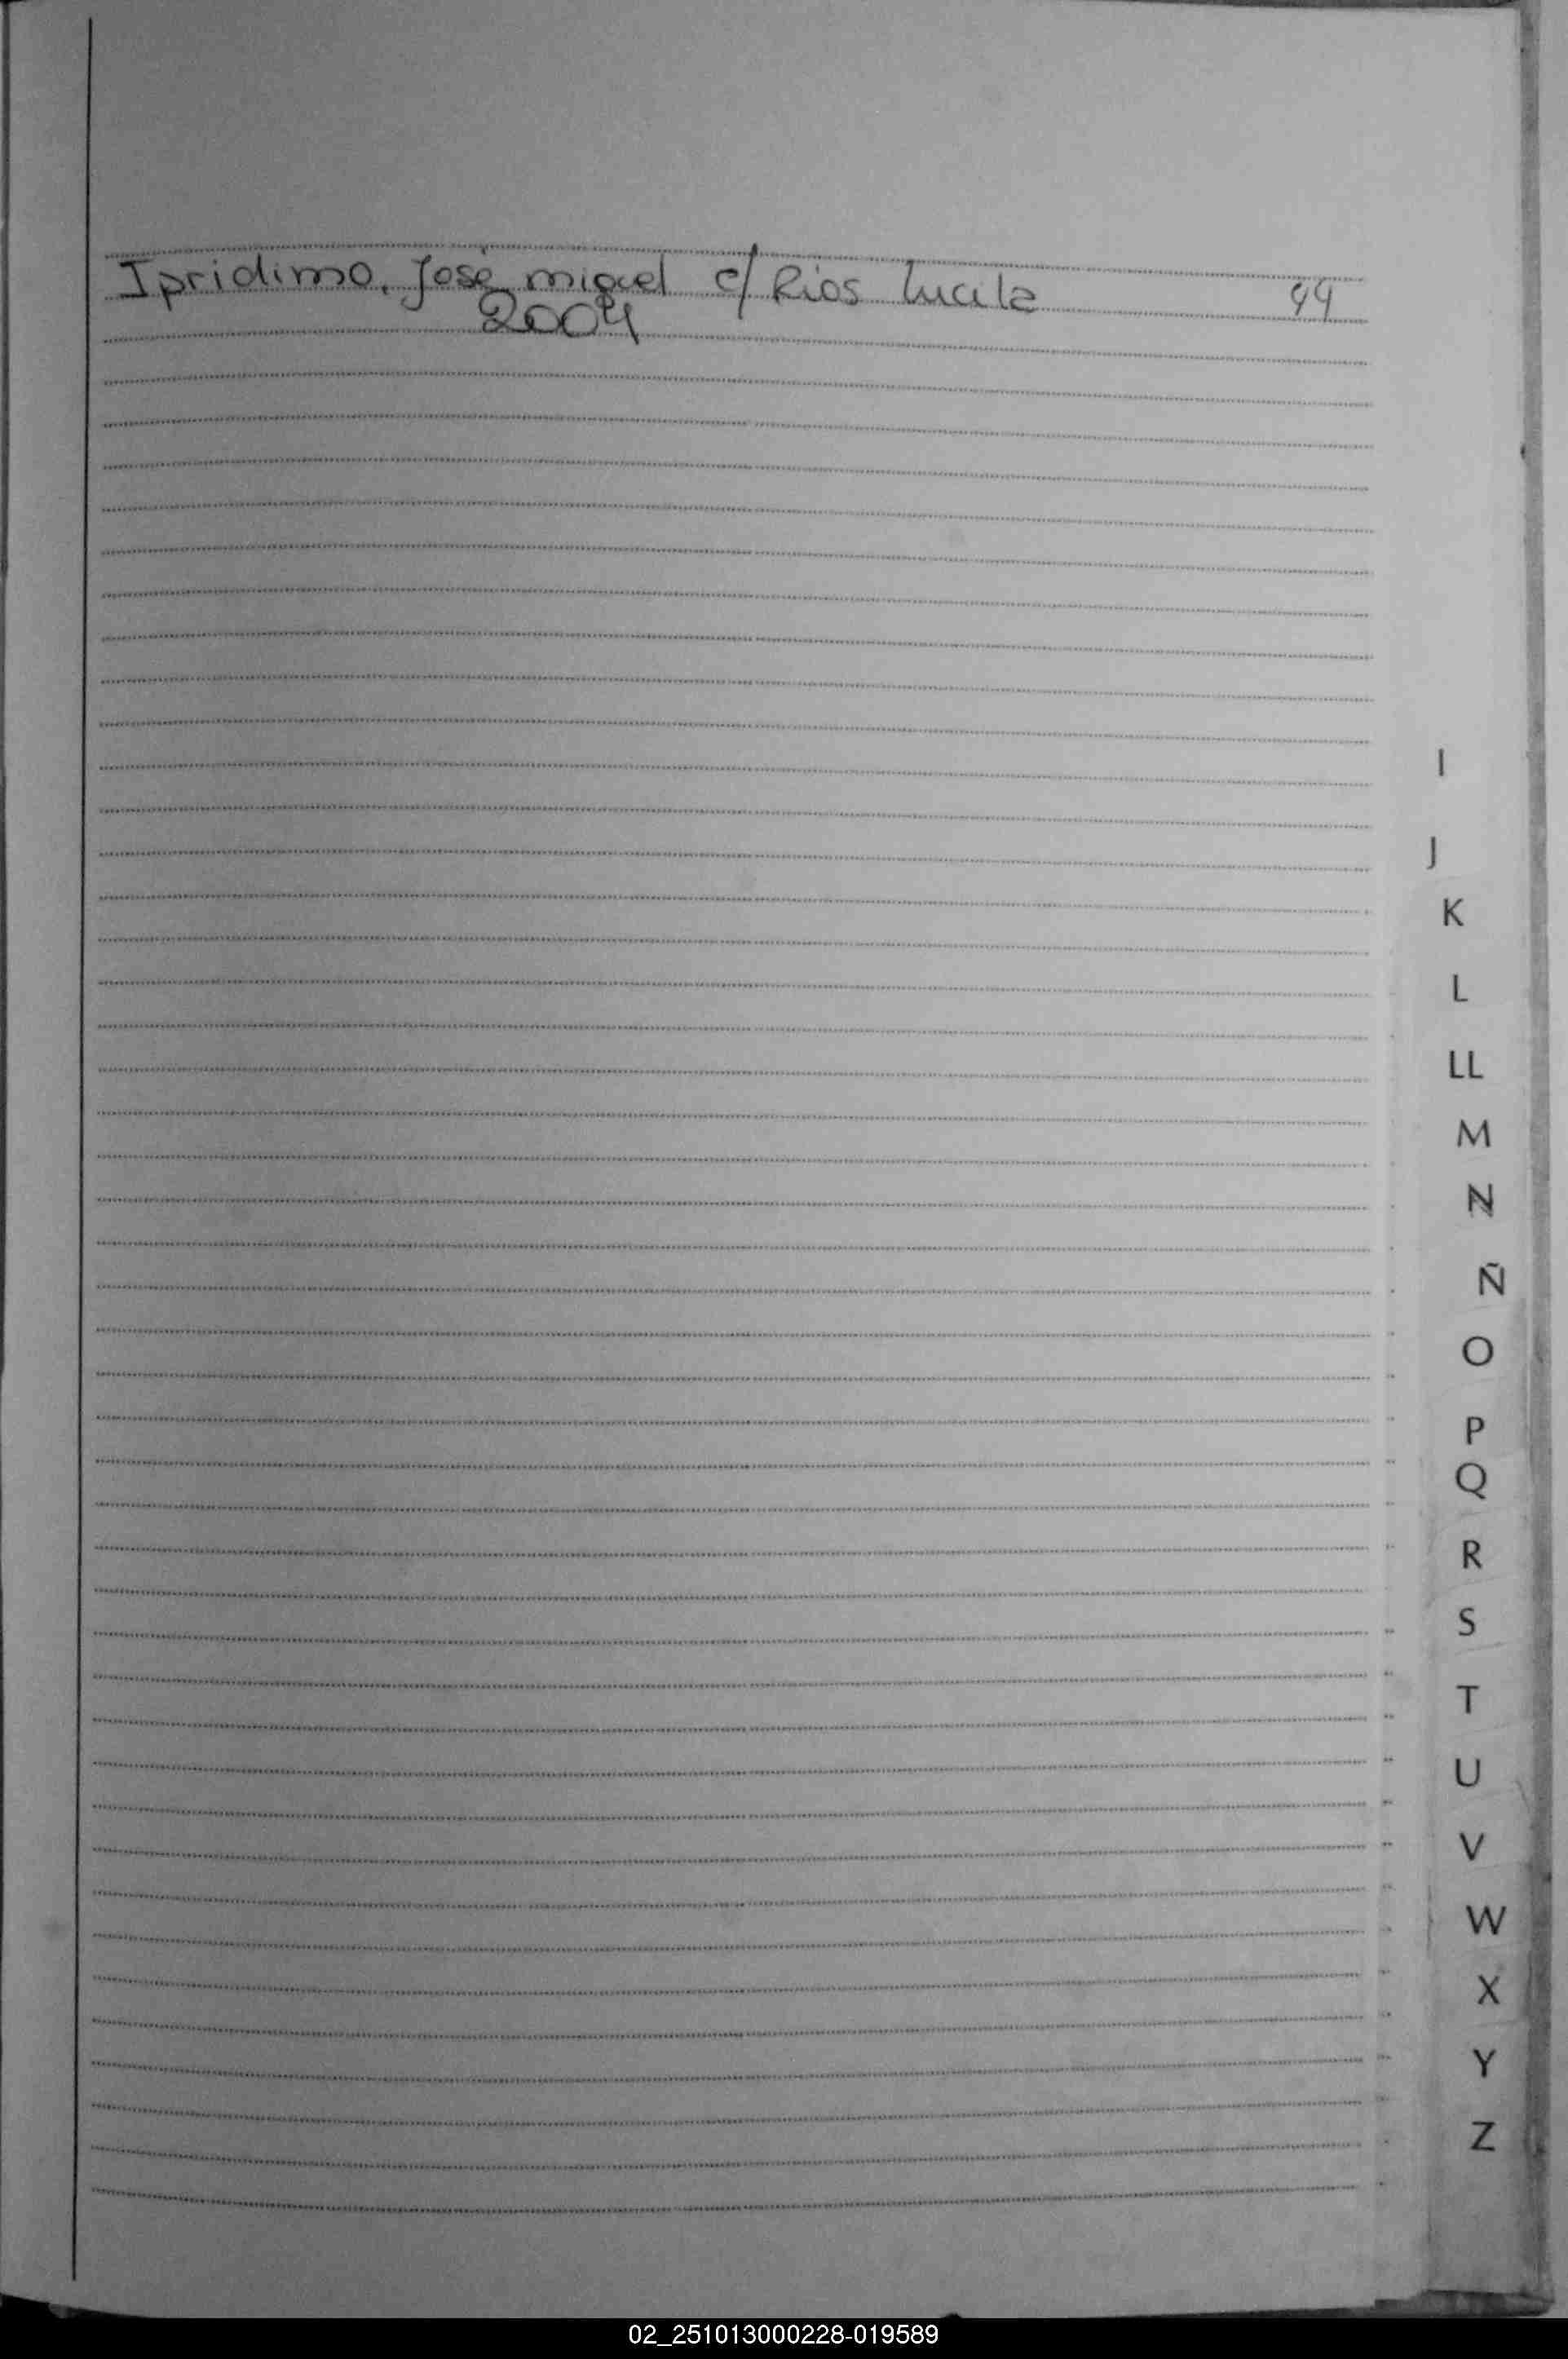 Ipridimo, José miguel c/ Rios Lucila 44
2004
I
J
K
L
LL
M
N
Ñ
O
P
Q
R
S
T
U
V
W
X
Y
Z
02_251013000228-019589